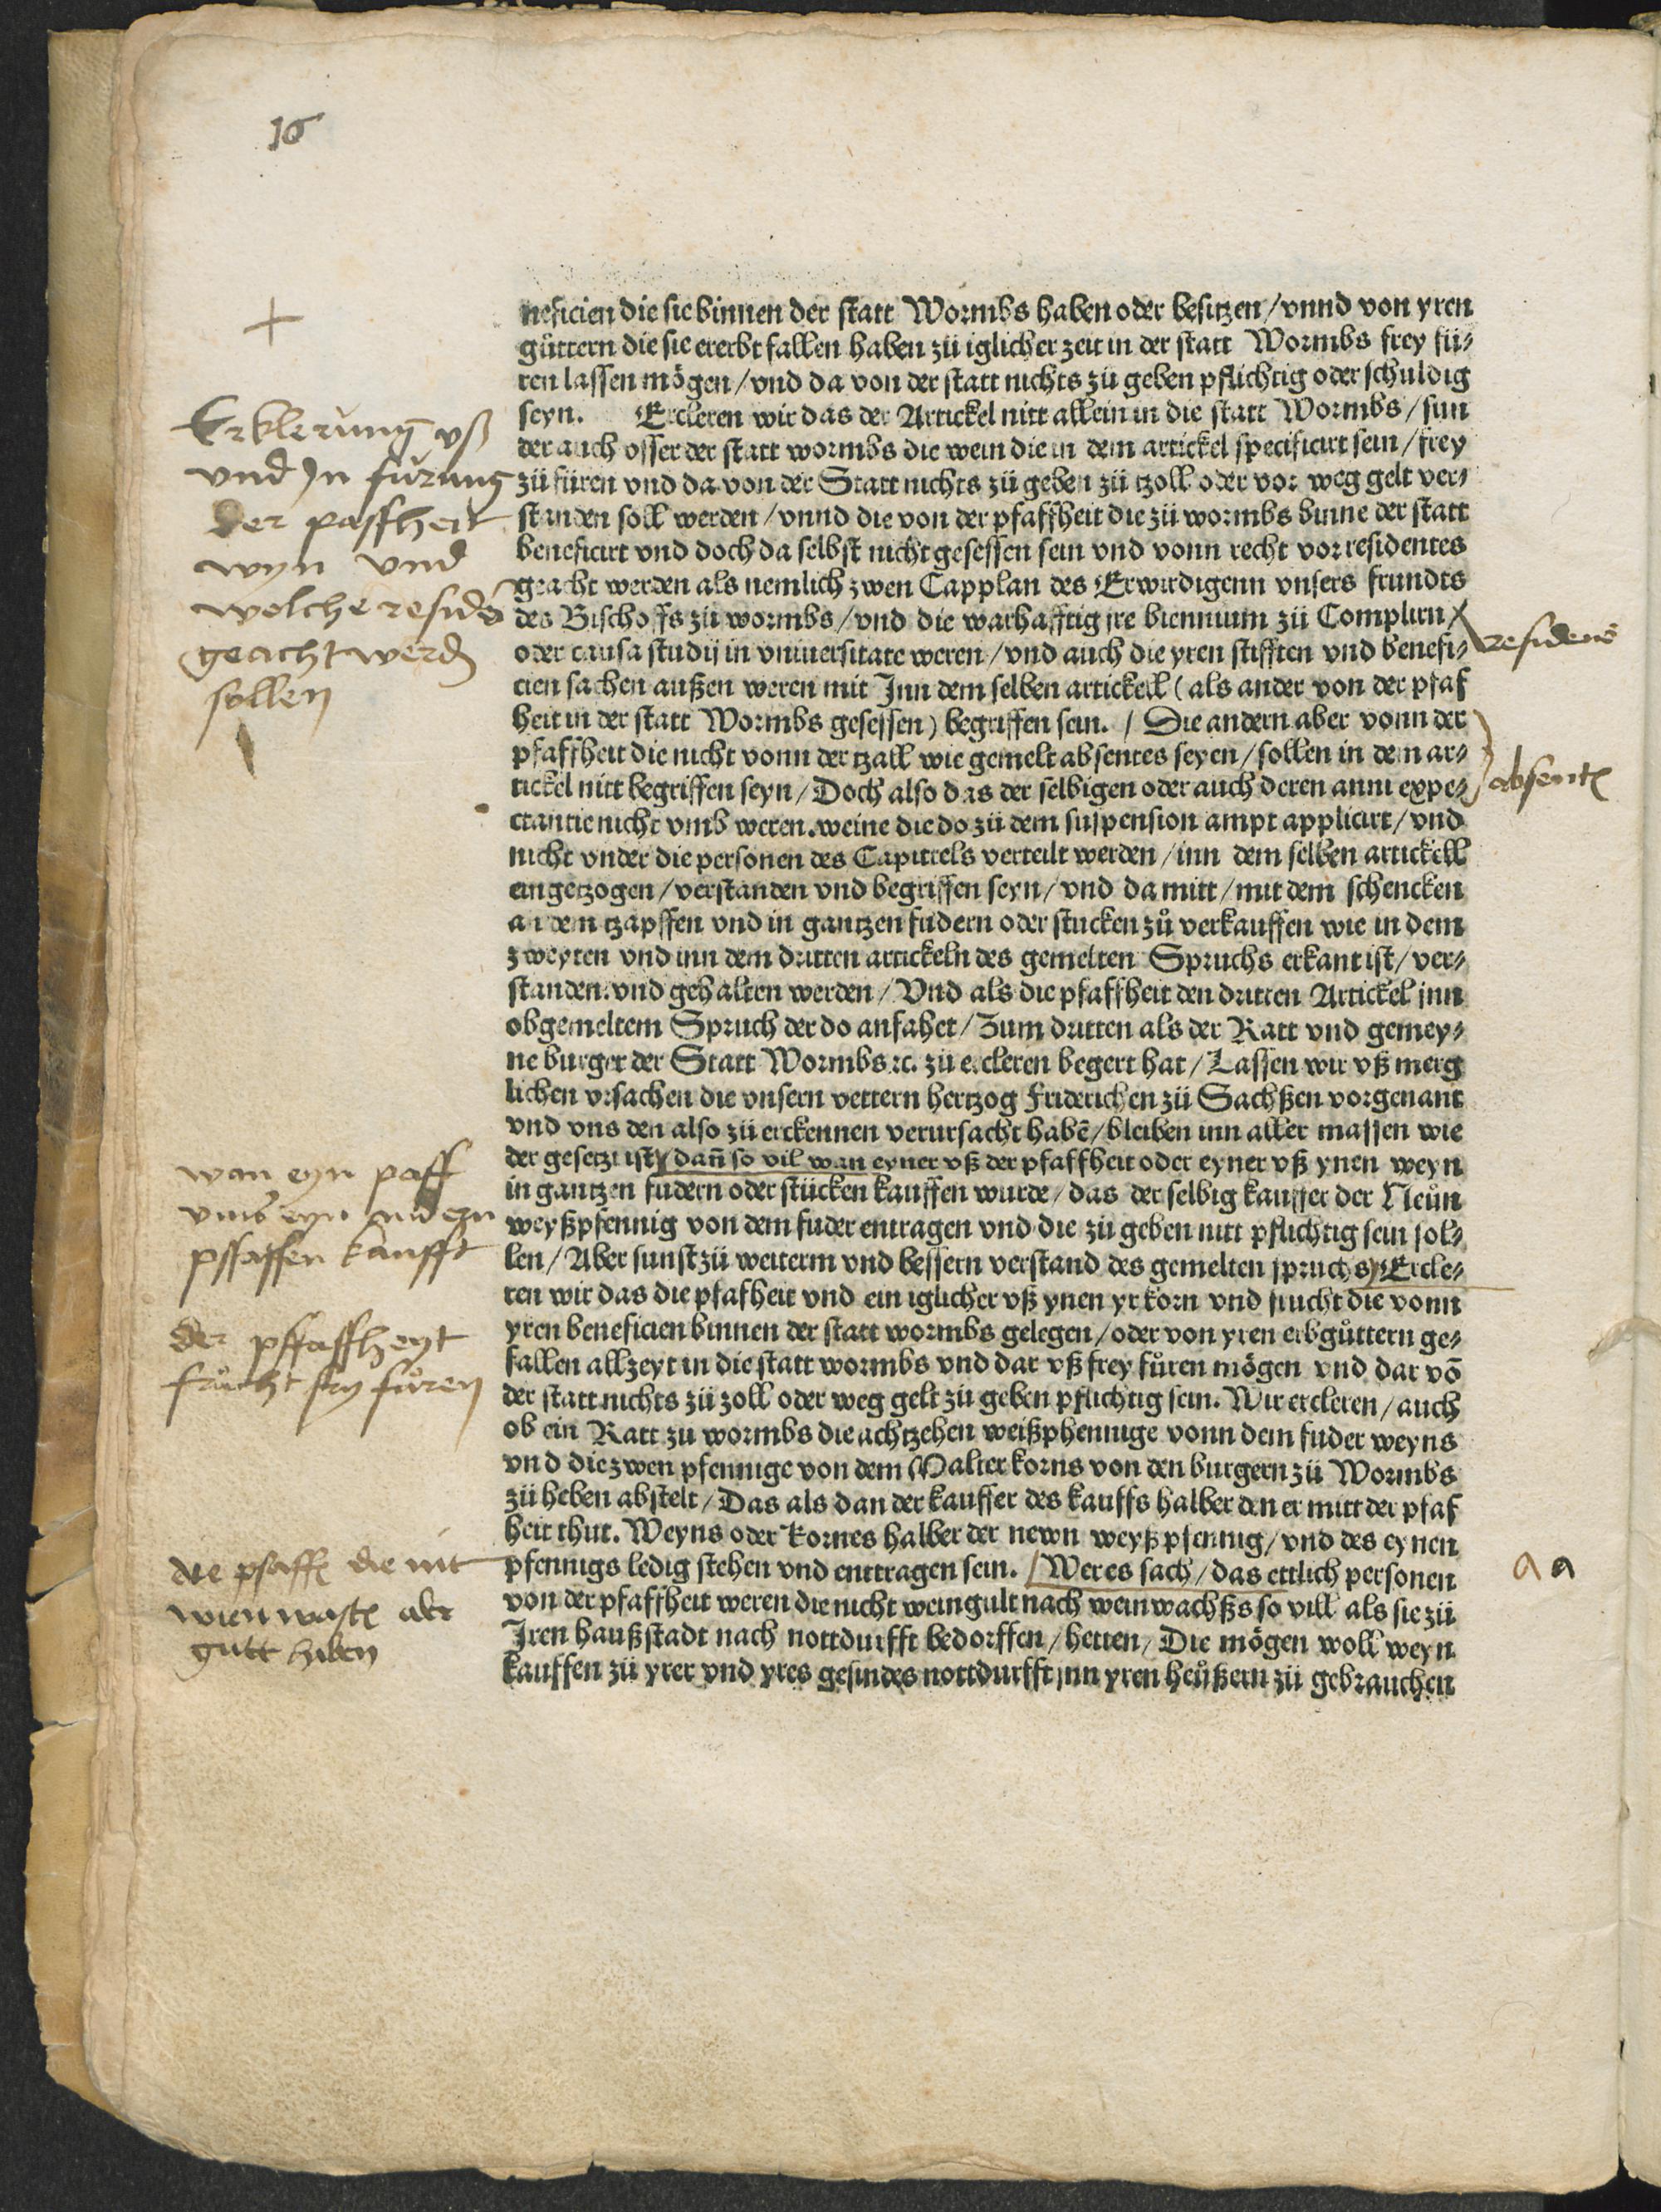 16
neficien die sie binnen der statt Wormbs haben oder besitzen / vnnd von yren
gůttern die sie ererbt fallen haben zü iglicher zeit in der statt Wormbs frey fü⸗
ren lassen mögen / vnd da von der statt nichts zü geben pflichtig oder schuldig
seyn. Ercleren wir das der Artickel nitt allein in die statt Wormbs / sun
der auch osser der statt wormbs die wein die in dem artickel specificirt sein / frey
zü füren vnd da von der Statt nichts zü geben zü tzoll oder vor weg gelt ver⸗
standen soll werden / vnnd die von der pfaffheit die zü wormbs binne der statt
beneficirt vnd doch da selbst nicht gesessen sein vnd vonn recht vor residentes
geacht werden als nemlich zwen Capplan des Erwirdigenn vnsers frundts
des Bischoffs zü wormbs / vnd die warhafftig jre biennium zü Complirn
oder causa studij in vniuersitate weren / vnd auch die yren stifften vnd benefi⸗
cien sachen außen weren mit Jnn dem selben artickell (als ander von der pfaf
heit in der statt Wormbs gesessen) begriffen sein. / Die andern aber vonn der
pfaffheit die nicht vonn der tzall wie gemelt absentes seyen / sollen in dem ar⸗
tickel nitt begriffen seyn / Doch also das der selbigen oder auch deren anni expe⸗
ctantie nicht vmb weren. weine die do zü dem suspension ampt applicirt / vnd
nicht vnder die personen des Capittels verteilt werden / inn dem selben artickell
eingetzogen / verstanden vnd begriffen seyn / vnd da mitt / mit dem schencken
an dem tzapffen vnd in gantzen fudern oder stucken zů verkauffen wie in dem
zweyten vnd inn dem dritten artickeln des gemelten Spruchs erkant ist / ver⸗
standen. vnd gehalten werden / Vnd als die pfaffheit den dritten Artickel jnn
obgemeltem Spruch der do anfahet / Zum dritten als der Ratt vnd gemey⸗
ne burger der Statt Wormbs ⁊c. zü ercleren begert hat / Lassen wir vß merg
lichen vrsachen die vnsern vettern hertzog Friderichen zü Sachßen vorgenant
vnd vns den also zü erckennen verursacht habẽ / bleiben inn aller massen wie
der gesetzt ist / dañ so vil wan eyner vß der pfaffheit oder eyner vß ynen weyn
in gantzen fudern oder stücken kauffen wurde / das der selbig kauffer der Neůn
weyßpfennig von dem fuder entragen vnd die zü geben nitt pflichtig sein sol⸗
len / Aber sunst zü weiterm vnd bessern verstand des gemelten spruchs / Ercle⸗
ren wir das die pfafheit vnd ein iglicher vß ynen yr korn vnd frucht die vonn
yren beneficien binnen der statt wormbs gelegen / oder von yren erbgůttern ge⸗
fallen allzeyt in die statt wormbs vnd dar vß frey fůren mögen vnd dar võ
der statt nichts zü zoll oder weg gelt zü geben pflichtig sein. Wir ercleren / auch
ob ein Ratt zu wormbs die achtzehen weißphennige vonn dem fuder weyns
vnd die zwen pfennige von dem Malter korns von den burgern zü Wormbs
zü heben abstelt / Das als dan der kauffer des kauffs halber den er mitt der pfaf
heit thut. Weyns oder Kornes halber der newn weyß pfennig / vnd des eynen
pfennigs ledig stehen vnd enttragen sein. / Wer es sach / das ettlich personen
von der pfaffheit weren die nicht weingult nach weinwachßs so vill als sie zü
Jren haußstadt nach nottdurfft bedorffen / hetten / Die mögen woll weyn
kauffen zü yrer vnd yres gesindes nottdurfft jnn yren heůßern zü gebrauchen
Erklerung vß
vnd In furung
der paffheit
wyn vnd
welche residẽ
geacht werdẽ
sollen
residens
absentes
wan eyn paff
vmb eyn andern
pfaffen kaufft
der pfaffheyt
frucht fry furen
die pfaffẽ die nit
wien wastẽ ader
gutt haben
a a